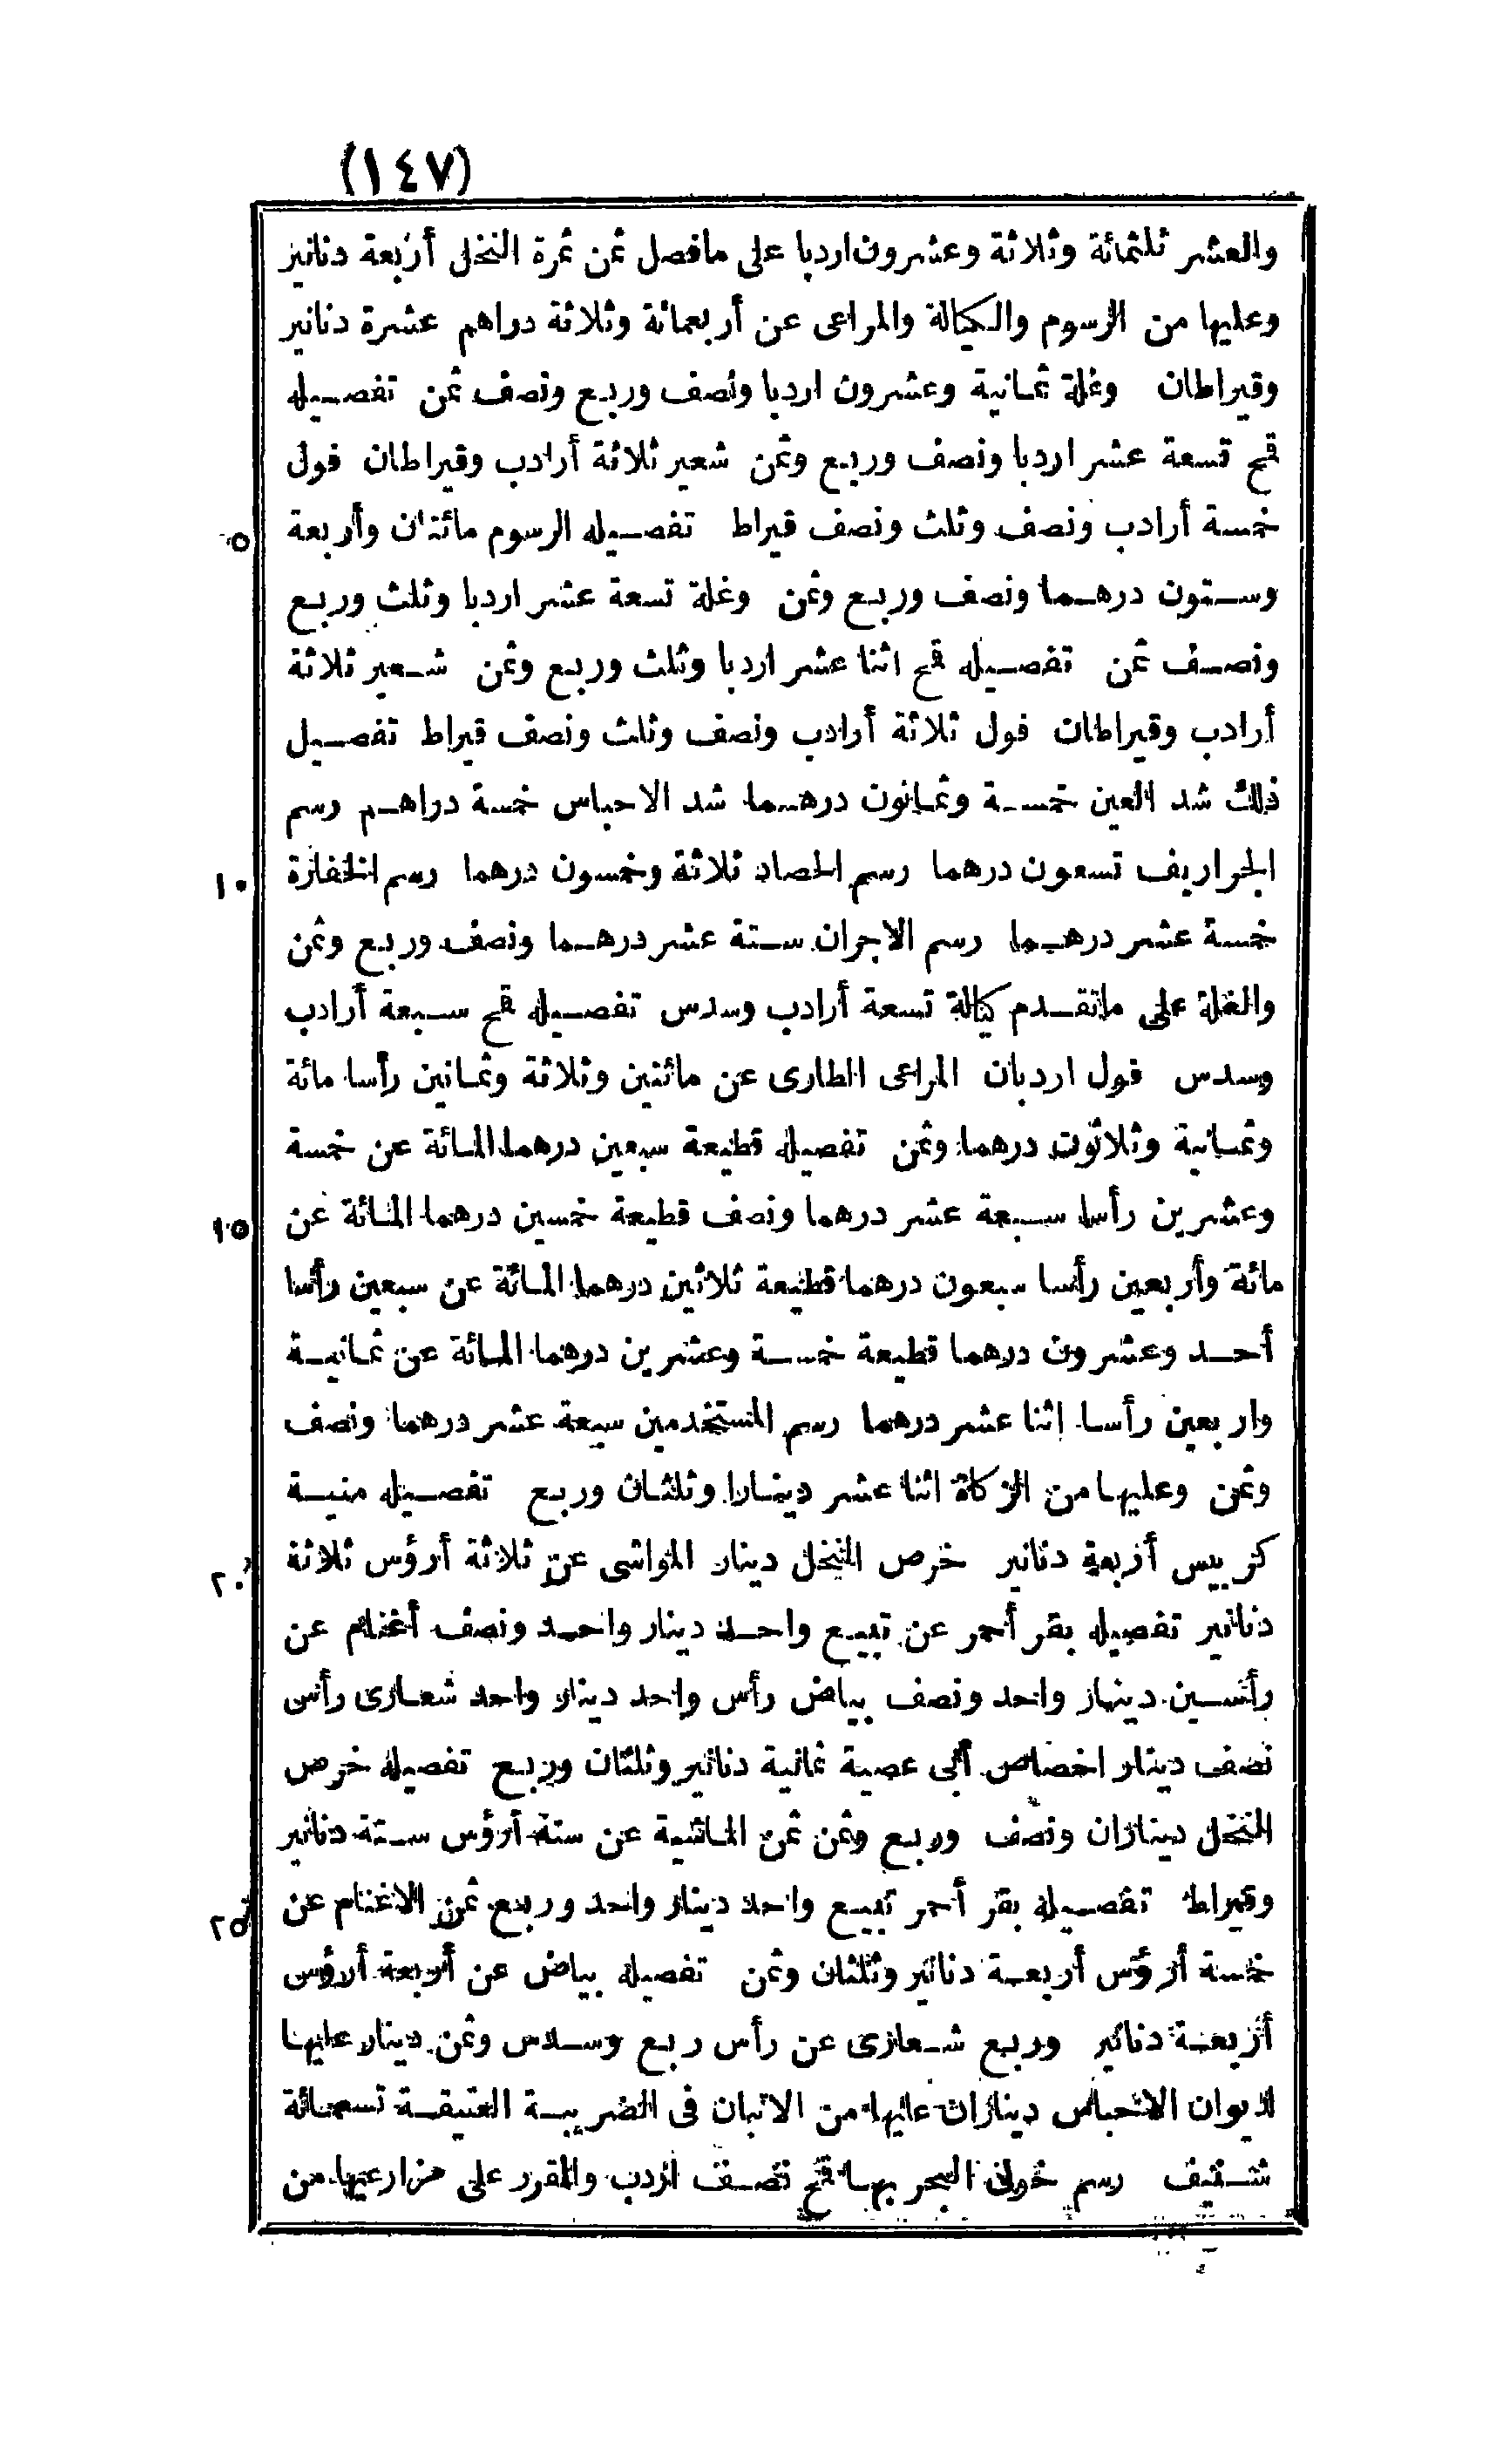 (١٤٧)
والعشر ثلثمائة وثلاثة وعشرون اردبا على مافصل ثمن ثمرة النخل أربعة دنانير
وعليها من الرسوم والكيالة والمراعى عن أربعمائة وثلاثة دراهم عشرة دنانير
وقيراطان وغلة ثمانية وعشرون اردبا ونصف وربع ونصف ثمن تفصيله
قمح تسعة عشر اردبا ونصف وربع وثمن شعير ثلاثة أرادب وقيراطان فول
٥ خمسة أرادب ونصف وثلث ونصف قيراط تفصيله الرسوم مائتان وأربعة
وستون درهما ونصف وربع وثمن وغلة تسعة عشر اردبا وثلث وربع
ونصف ثمن تفصيله قمح اثنا عشر اردبا وثلث وربع وثمن شعير ثلاثة
أرادب وقيراطان فول ثلاثة أرادب ونصف وثلث ونصف قيراط تفصيل
ذلك شد العين خمسة وثمانون درهما شد الاحباس خمسة دراهم رسم
١٠ الجراريف تسعون درهما رسم الحصاد ثلاثة وخمسون درهما رسم الخفارة
خمسة عشر درهما رسم الاجران ستة عشر درهما ونصف وربع وثمن
والغلة على ماتقدم كيالة تسعة أرادب وسدس تفصيله قمح سبعة أرادب
وسدس فول اردبان المراعى الطارى عن مائتين وثلاثة وثمانين رأسا مائة
وثمانية وثلاثون درهما وثمن تفصيله قطيعة سبعين درهما المائة عن خمسة
١٥ وعشرين رأسا سبعة عشر درهما ونصف قطيعة خمسين درهما المائة عن
مائة وأربعين رأسا سبعون درهما قطيعة ثلاثين درهما المائة عن سبعين رأسا
أحد وعشرون درهما قطيعة خمسة وعشرين درهما المائة عن ثمانية
واربعين رأسا إثنا عشر درهما رسم المستخدمين سبعة عشر درهما ونصف
وثمن وعليها من الزكاة اثنا عشر دينارا وثلثان وربع تفصيله منية
٢٠ كربيس أربعة دنانير خرص النخل دينار المواشى عن ثلاثة أرؤس ثلاثة
دنانير تفصيله بقر أحمر عن تبيع واحد دينار واحد ونصف أغنام عن
رأسين دينار واحد ونصف بياض رأس واحد دينار واحد شعارى رأس
نصف دينار اخصاص أبى عصية ثمانية دنانير وثلثان وربع تفصيله خرص
النخل ديناران ونصف وربع وثمن ثمن الماشية عن ستة أرؤس ستة دنانير
٢٥ وقيراط تفصيله بقر أحمر تبيع واحد دينار واحد وربع ثمن الاغنام عن
خمسة أرؤس أربعة دنانير وثلثان وثمن تفصيله بياض عن أربعة أرؤس
أربعة دنانير وربع شعارى عن رأس ربع وسدس وثمن دينار عليها
لديوان الاحباس ديناران عليها من الاتبان فى الضريبة العتيقة تسعمائة
شنيف رسم خولى البحر بها قمح نصف اردب والمقرر على مزارعيها من